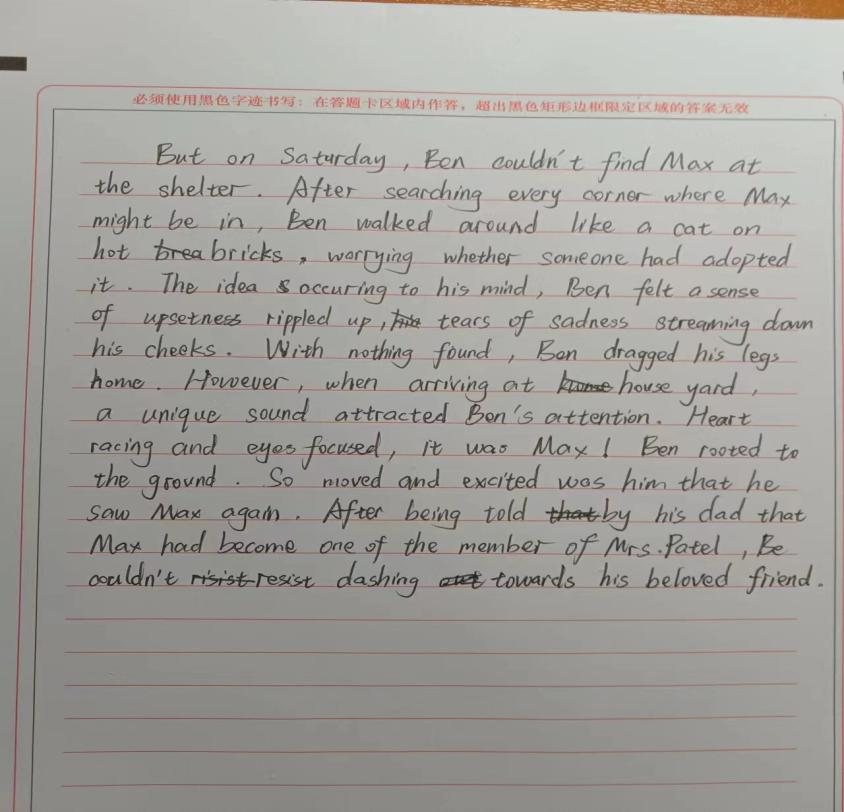 必须使用黑色字迹书写：在答题卡区域内作答，超出黑色矩形边框限定区域的答案无效
But on Saturday, Ben couldn't find Max at
the shelter. After searching every corner where Max
might be in, Ben walked around like a cat on
hot brea bricks, worrying whether someone had adopted
it. The idea s occuring to his mind, Ben felt a sense
of upsetness rippled up, tears of sadness streaming down
his cheeks. With nothing found, Ben dragged his legs
home. However, when arriving at home house yard,
a unique sound attracted Ben's attention. Heart
racing and eyes focused, it was Max! Ben rooted to
the ground. So moved and excited was him that he
saw Max again. After being told that by his dad that
Max had become one of the member of Mrs.Patel, Be
couldn't risist resist dashing towards his beloved friend.